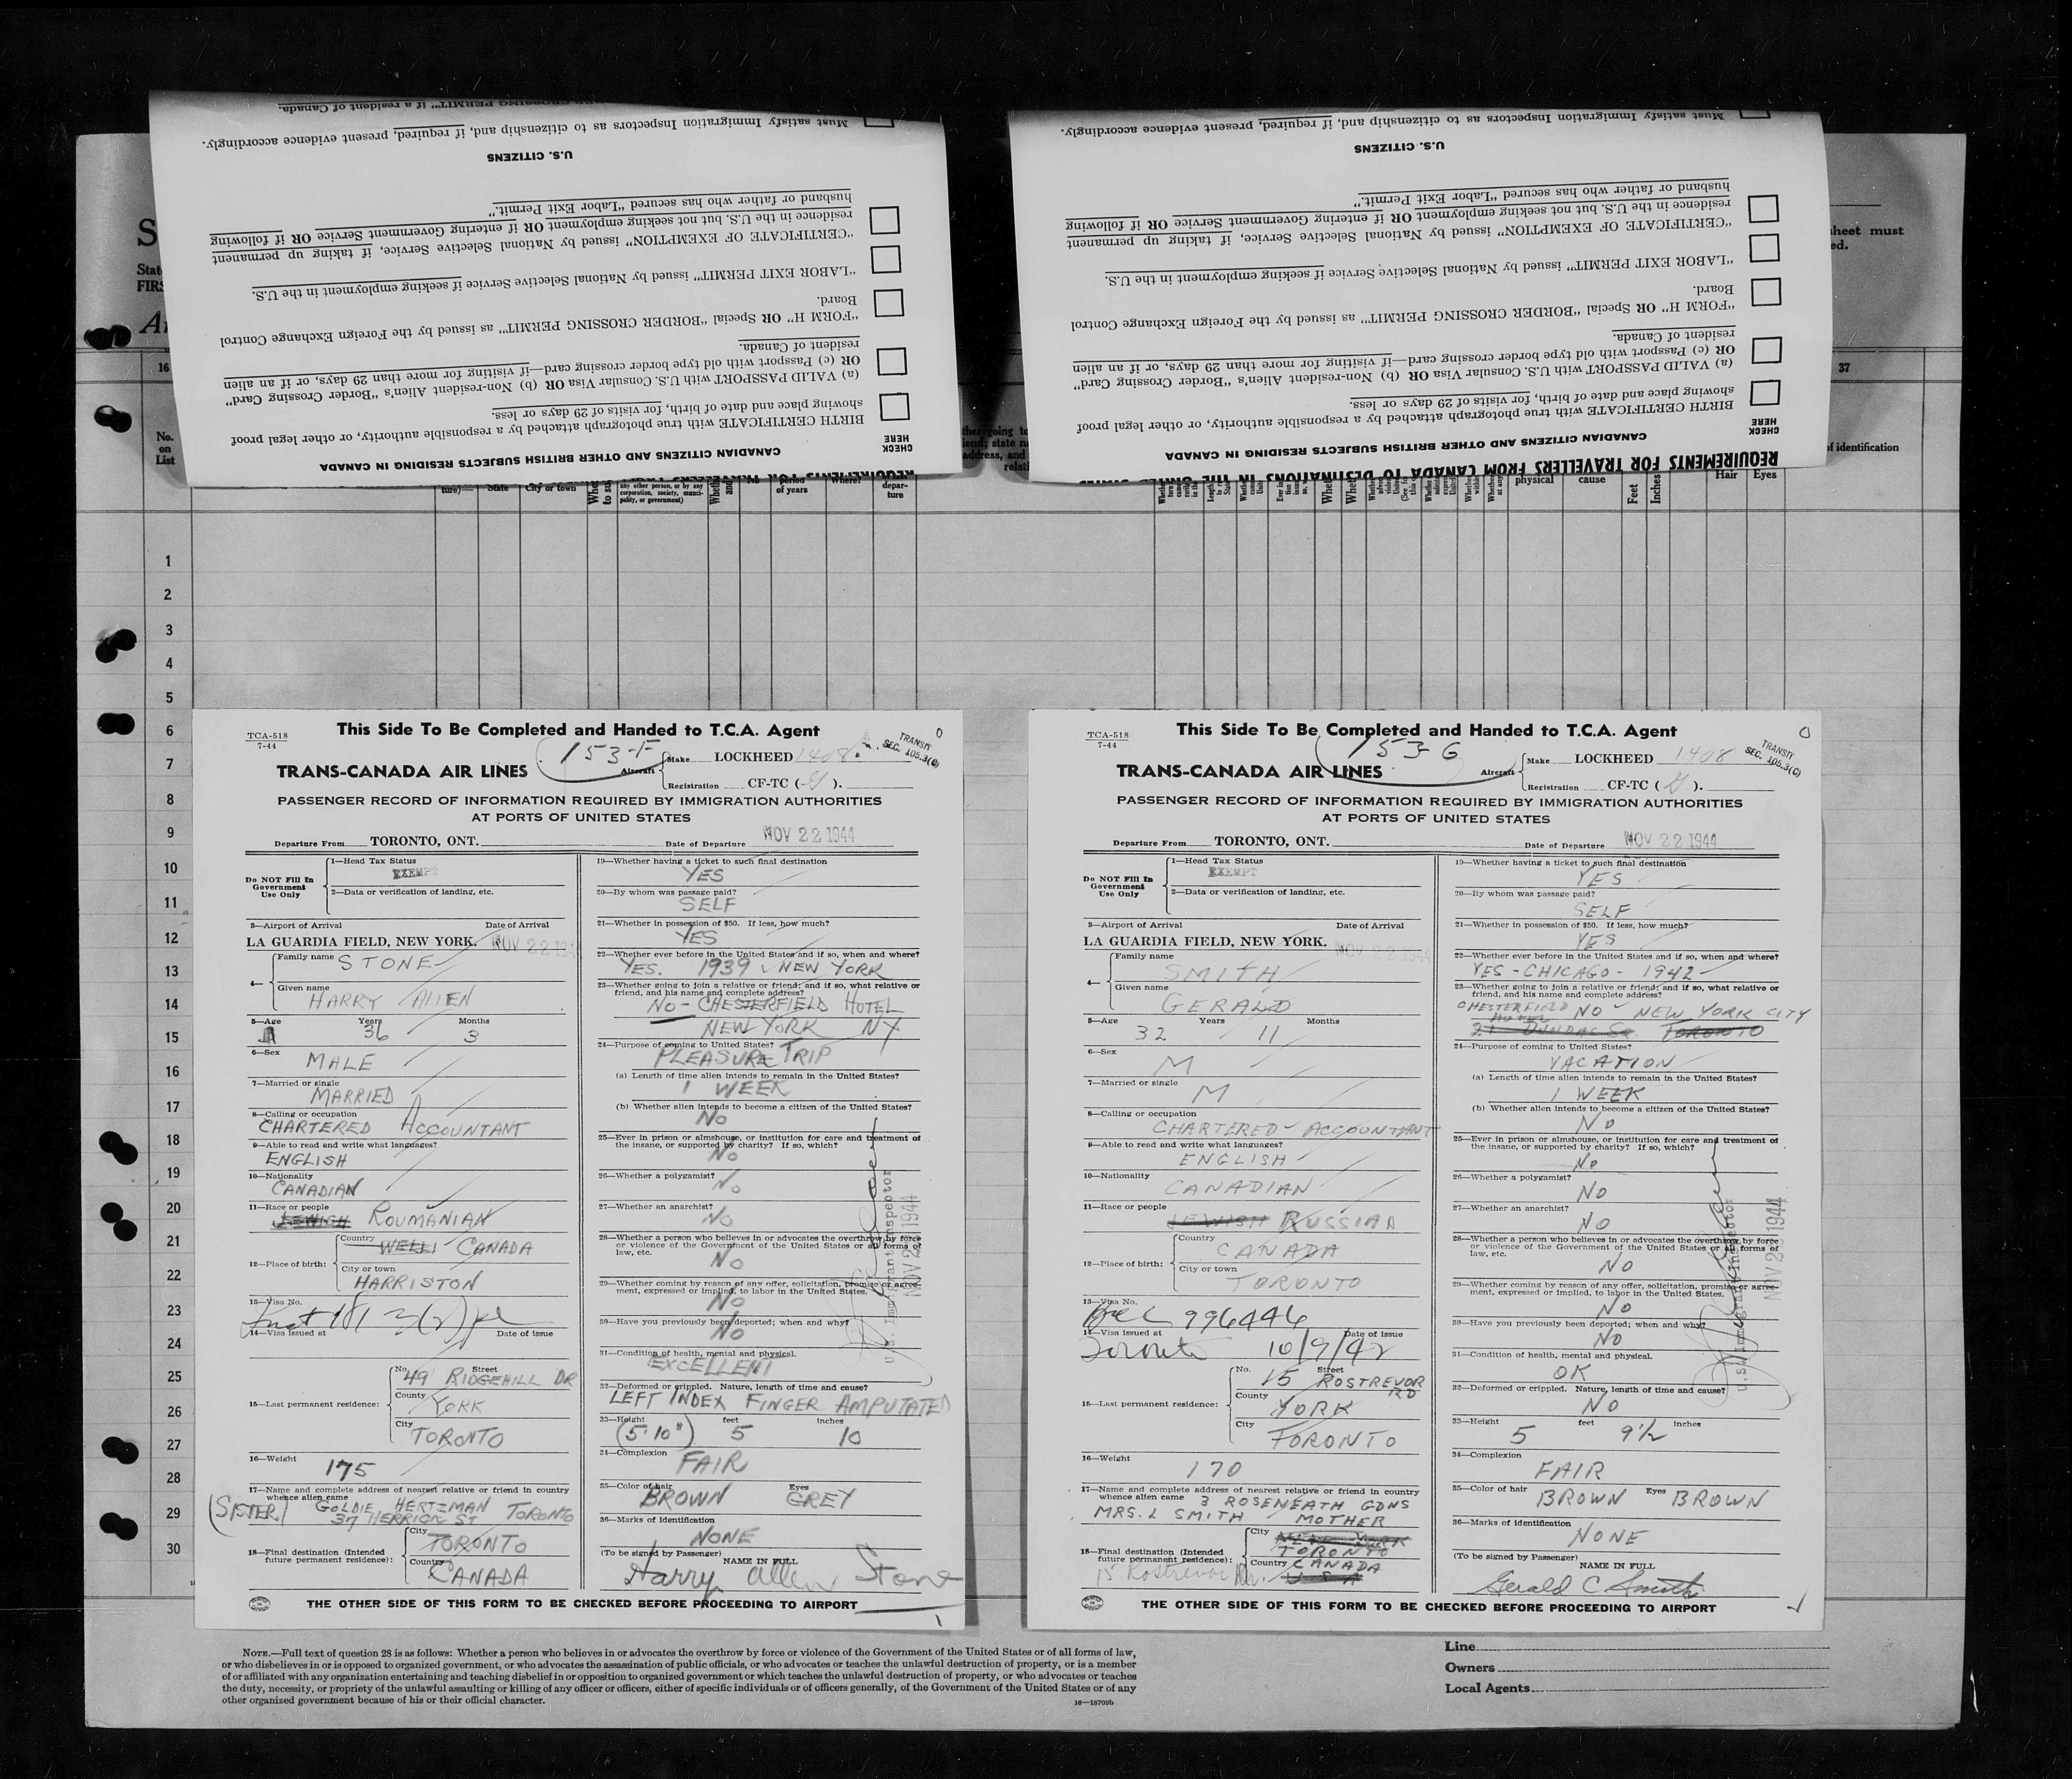 Must satisfy Immigration Inspectors as to citizenship and, if required, present evidence accordingly.
U.S. CITIZENS
husband or father who has secured "Labor Exit Permit."
residence in the U.S. but not seeking employment OR if entering Government Service OR if following
"CERTIFICATE OF EXEMPTION" issued by National Selective Service, if taking up permanent
"LABOR EXIT PERMIT" issued by National Selective Service if seeking employment in the U.S.
Board.
"FORM H" OR Special "BORDER CROSSING PERMIT" as issued by the Foreign Exchange Control
resident of Canada.
OR (c) Passport with old type border crossing card—if visiting for more than 29 days, or if an alien
(a) VALID PASSPORT with U.S. Consular Visa OR (b) Non-resident Alien's "Border Crossing Card"
showing place and date of birth, for visits of 29 days or less.
BIRTH CERTIFICATE with true photograph attached by a responsible authority, or other legal proof
CHECK HERE
CANADIAN CITIZENS AND OTHER BRITISH SUBJECTS RESIDING IN CANADA
Must satisfy Immigration Inspectors as to citizenship and, if required, present evidence accordingly.
U.S. CITIZENS
husband or father who has secured "Labor Exit Permit."
residence in the U.S. but not seeking employment OR if entering Government Service OR if following
"CERTIFICATE OF EXEMPTION" issued by National Selective Service, if taking up permanent
"LABOR EXIT PERMIT" issued by National Selective Service if seeking employment in the U.S.
Board.
"FORM H" OR Special "BORDER CROSSING PERMIT" as issued by the Foreign Exchange Control
resident of Canada.
OR (c) Passport with old type border crossing card—if visiting for more than 29 days, or if an alien
(a) VALID PASSPORT with U.S. Consular Visa OR (b) Non-resident Alien's "Border Crossing Card"
showing place and date of birth, for visits of 29 days or less.
BIRTH CERTIFICATE with true photograph attached by a responsible authority, or other legal proof
CHECK HERE
CANADIAN CITIZENS AND OTHER BRITISH SUBJECTS RESIDING IN CANADA
REQUIREMENTS FOR TRAVELLERS FROM CANADA TO DESTINATIONS IN THE
sheet must
16
37
No. on List
of identification
State City or town
of years
Where?
depar-
ture
physical
cause
Feet
Inches
Hair Eyes
1
2
3
4
5
6
7
8
9
10
11
12
13
14
15
16
17
18
19
20
21
22
23
24
25
26
27
28
29
30
TCA-518
7-44
This Side To Be Completed and Handed to T.C.A. Agent
153-F
TRANSIT
SEC. 105.3(C)
TRANS-CANADA AIR LINES
Aircraft Make LOCKHEED 1408
Registration CF-TC ( G ).
PASSENGER RECORD OF INFORMATION REQUIRED BY IMMIGRATION AUTHORITIES
AT PORTS OF UNITED STATES
Departure From TORONTO, ONT. Date of Departure NOV 22 1944
Do NOT Fill In Government Use Only
1—Head Tax Status
EXEMPT
2—Data or verification of landing, etc.
3—Airport of Arrival Date of Arrival
LA GUARDIA FIELD, NEW YORK. NOV 22 194
4— Family name STONE
Given name
HARRY ALLEN
5—Age Years Months
36 3
6—Sex
MALE
7—Married or single
MARRIED
8—Calling or occupation
CHARTERED ACCOUNTANT
9—Able to read and write what languages?
ENGLISH
10—Nationality
CANADIAN
11—Race or people
JEWISH ROUMANIAN
12—Place of birth: Country
CANADA
City or town
HARRISTON
13—Visa No.
14—Visa issued at Date of issue
15—Last permanent residence: No. Street
49 RIDGEHILL DR
County
YORK
City
TORONTO
16—Weight
175
17—Name and complete address of nearest relative or friend in country
whence alien came
(SISTER) GOLDIE HERTZMAN
37 HERRICK ST TORONTO
18—Final destination (Intended
future permanent residence): City
TORONTO
Country
CANADA
19—Whether having a ticket to such final destination
YES
20—By whom was passage paid?
SELF
21—Whether in possession of $50. If less, how much?
YES
22—Whether ever before in the United States and if so, when and where?
YES. 1939 NEW YORK
23—Whether going to join a relative or friend; and if so, what relative or
friend, and his name and complete address?
NO - CHESTERFIELD HOTEL
NEW YORK NY
24—Purpose of coming to United States?
PLEASURE TRIP
(a) Length of time alien intends to remain in the United States?
1 WEEK
(b) Whether alien intends to become a citizen of the United States?
NO
25—Ever in prison or almshouse, or institution for care and treatment of
the insane, or supported by charity? If so, which?
NO
26—Whether a polygamist?
NO
27—Whether an anarchist?
NO
28—Whether a person who believes in or advocates the overthrow by force
or violence of the Government of the United States or all forms of
law, etc.
NO
29—Whether coming by reason of any offer, solicitation, promise or agree-
ment, expressed or implied, to labor in the United States.
NO
30—Have you previously been deported; when and why?
NO
31—Condition of health, mental and physical.
EXCELLENT
32—Deformed or crippled. Nature, length of time and cause?
LEFT INDEX FINGER AMPUTATED
33—Height feet inches
(5'10") 5 10
34—Complexion
FAIR
35—Color of hair Eyes
BROWN GREY
36—Marks of identification
NONE
(To be signed by Passenger) NAME IN FULL
Harry Allen Stone
U.S. Immigrant Inspector
NOV 22 1944
THE OTHER SIDE OF THIS FORM TO BE CHECKED BEFORE PROCEEDING TO AIRPORT
TCA-518
7-44
This Side To Be Completed and Handed to T.C.A. Agent
153-G
TRANSIT
SEC. 105.3(C)
TRANS-CANADA AIR LINES
Aircraft Make LOCKHEED 1408
Registration CF-TC ( G ).
PASSENGER RECORD OF INFORMATION REQUIRED BY IMMIGRATION AUTHORITIES
AT PORTS OF UNITED STATES
Departure From TORONTO, ONT. Date of Departure NOV 22 1944
Do NOT Fill In Government Use Only
1—Head Tax Status
EXEMPT
2—Data or verification of landing, etc.
3—Airport of Arrival Date of Arrival
LA GUARDIA FIELD, NEW YORK. NOV 22 194
4— Family name
SMITH
Given name
GERALD
5—Age Years Months
32 11
6—Sex
M
7—Married or single
M
8—Calling or occupation
CHARTERED - ACCOUNTANT
9—Able to read and write what languages?
ENGLISH
10—Nationality
CANADIAN
11—Race or people
JEWISH RUSSIAN
12—Place of birth: Country
CANADA
City or town
TORONTO
13—Visa No.
996446
14—Visa issued at Date of issue
Toronto 10/9/42
15—Last permanent residence: No. Street
15 ROSTREVOR RD
County
YORK
City
TORONTO
16—Weight
170
17—Name and complete address of nearest relative or friend in country
whence alien came 3 ROSENEATH GDNS
MRS. L SMITH MOTHER
18—Final destination (Intended
future permanent residence): City
NEW YORK
TORONTO
Country CANADA
USA
15 Rostrevor Rd.
19—Whether having a ticket to such final destination
YES
20—By whom was passage paid?
SELF
21—Whether in possession of $50. If less, how much?
YES
22—Whether ever before in the United States and if so, when and where?
YES - CHICAGO - 1942
23—Whether going to join a relative or friend; and if so, what relative or
friend, and his name and complete address?
CHESTERFIELD HOTEL NO - NEW YORK CITY
21 DUNDAS SQ TORONTO
24—Purpose of coming to United States?
VACATION
(a) Length of time alien intends to remain in the United States?
1 WEEK
(b) Whether alien intends to become a citizen of the United States?
NO
25—Ever in prison or almshouse, or institution for care and treatment of
the insane, or supported by charity? If so, which?
NO
26—Whether a polygamist?
NO
27—Whether an anarchist?
NO
28—Whether a person who believes in or advocates the overthrow by force
or violence of the Government of the United States or all forms of
law, etc.
NO
29—Whether coming by reason of any offer, solicitation, promise or agree-
ment, expressed or implied, to labor in the United States.
NO
30—Have you previously been deported; when and why?
NO
31—Condition of health, mental and physical.
OK
32—Deformed or crippled. Nature, length of time and cause?
NO
33—Height feet inches
5 9½
34—Complexion
FAIR
35—Color of hair Eyes
BROWN BROWN
36—Marks of identification
NONE
(To be signed by Passenger) NAME IN FULL
Gerald C Smith
U.S. Immigrant Inspector
NOV 22 1944
THE OTHER SIDE OF THIS FORM TO BE CHECKED BEFORE PROCEEDING TO AIRPORT
NOTE.—Full text of question 28 is as follows: Whether a person who believes in or advocates the overthrow by force or violence of the Government of the United States or of all forms of law,
or who disbelieves in or is opposed to organized government, or who advocates the assassination of public officials, or who advocates or teaches the unlawful destruction of property, or is a member
of or affiliated with any organization entertaining and teaching disbelief in or opposition to organized government or which teaches the unlawful destruction of property, or who advocates or teaches
the duty, necessity, or propriety of the unlawful assaulting or killing of any officer or officers, either of specific individuals or of officers generally, of the Government of the United States or of any
other organized government because of his or their official character.
16—18709b
Line
Owners
Local Agents